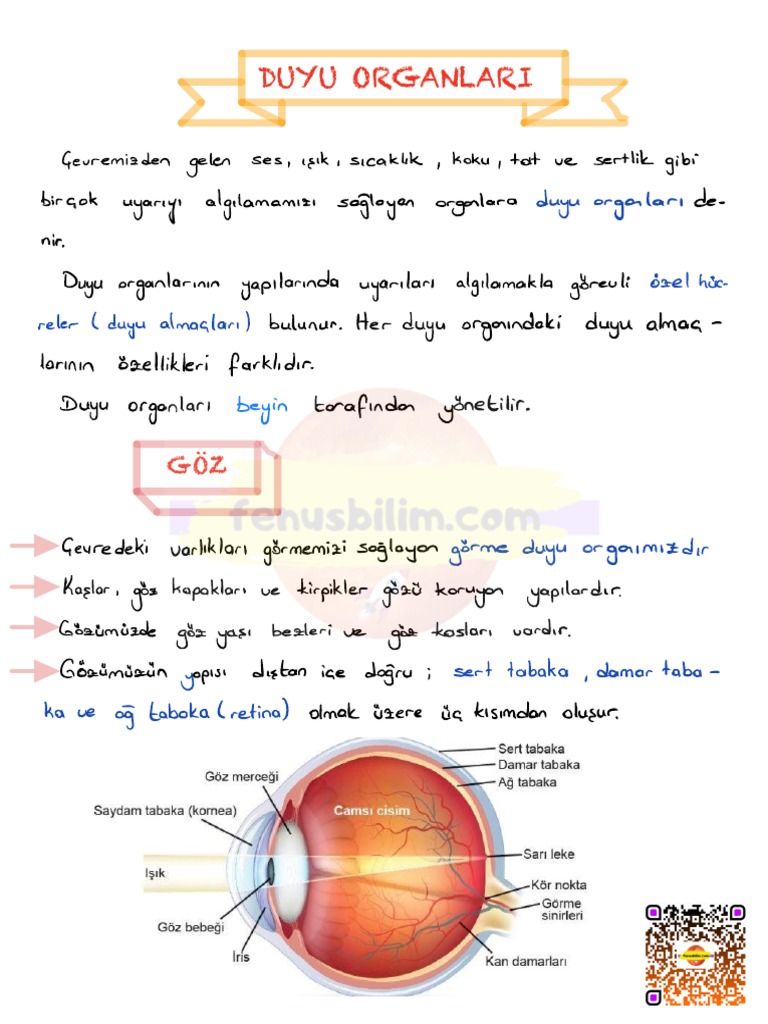 DUYU ORGANLARI
Çevremizden gelen ses, ışık, sıcaklık, koku, tat ve sertlik gibi
birçok uyarıyı algılamamızı sağlayan organlara duyu organları de-
nir.
Duyu organlarının yapılarında uyarıları algılamakla görevli özel hüc-
reler (duyu almaçları) bulunur. Her duyu organındaki duyu almaç-
larının özellikleri farklıdır.
Duyu organları beyin tarafından yönetilir.
GÖZ
fenusbilim.com
Çevredeki varlıkları görmemizi sağlayan görme duyu organımızdır
Kaşlar, göz kapakları ve kirpikler gözü koruyan yapılardır.
Gözümüzde göz yaşı bezleri ve göz kasları vardır.
Gözümüzün yapısı dıştan içe doğru; sert tabaka, damar taba-
ka ve ağ tabaka (retina) olmak üzere üç kısımdan oluşur.
Sert tabaka
Damar tabaka
Ağ tabaka
Göz merceği
Saydam tabaka (kornea)
Camsı cisim
Işık
Sarı leke
Kör nokta
Görme
sinirleri
Göz bebeği
İris
Kan damarları